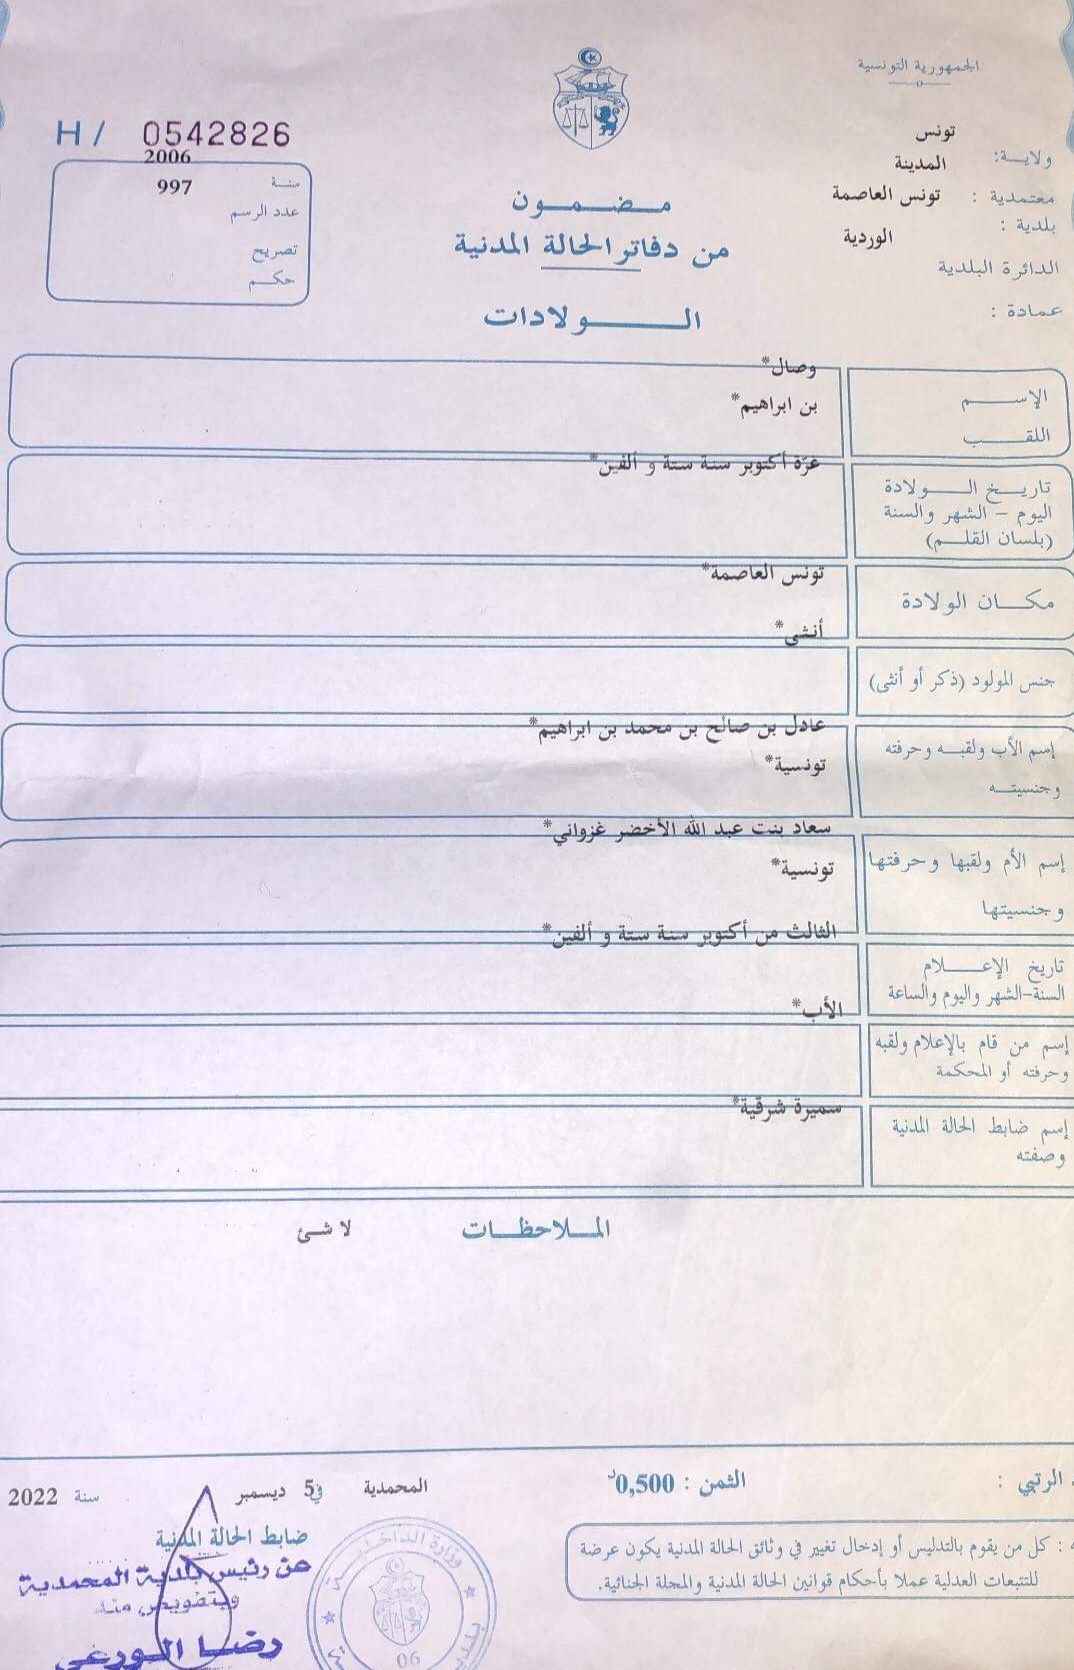 الجمهورية التونسية
H/ 0542826
ولاية: تونس
معتمدية : المدينة
بلدية : تونس العاصمة
الدائرة البلدية الوردية
عمادة :
سنة 2006
عدد الرسم 997
تصريح
حكم
مضمون
من دفاتر الحالة المدنية
الولادات
الإسم وصال*
اللقب بن ابراهيم*
تاريخ الولادة
اليوم - الشهر والسنة
(بلسان القلم)
غرّة أكتوبر سنة ستة و ألفين*
مكان الولادة تونس العاصمة*
جنس المولود (ذكر أو أنثى) أنثى*
إسم الأب ولقبه وحرفته
وجنسيته
عادل بن صالح بن محمد بن ابراهيم*
تونسية*
إسم الأم ولقبها وحرفتها
وجنسيتها
سعاد بنت عبد الله الأخضر غزواني*
تونسية*
تاريخ الإعلام
السنة-الشهر واليوم والساعة
الثالث من أكتوبر سنة ستة و ألفين*
إسم من قام بالإعلام ولقبه
وحرفته أو المحكمة
الأب*
إسم ضابط الحالة المدنية
وصفته
سميرة شرقية*
الملاحظات لا شئ
الرتبي :
الثمن : 0,500د
المحمدية في 5 ديسمبر سنة 2022
: كل من يقوم بالتدليس أو إدخال تغيير في وثائق الحالة المدنية يكون عرضة
للتتبعات العدلية عملا بأحكام قوانين الحالة المدنية والمجلة الجنائية.
ضابط الحالة المدنية
عن رئيس بلدية المحمدية
وبتفويض منه
رضا الورغي
وزارة الداخلية
06